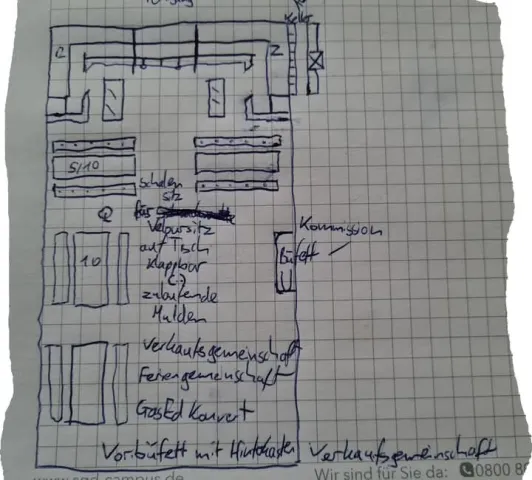 2
S/10
Schalen
sitz
für
Veloursitz
auf Tisch
klappbar
(:)
zulaufende
Mulden
10
Kommission
Büfett
Verkaufsgemeinschaft
Feriengemeinschaft
GasEd Konvert
Vorbüfett mit Hintokasten
Verkaufsgemeinschaft
www.sgd-campus.de
Wir sind für Sie da: 0800 8